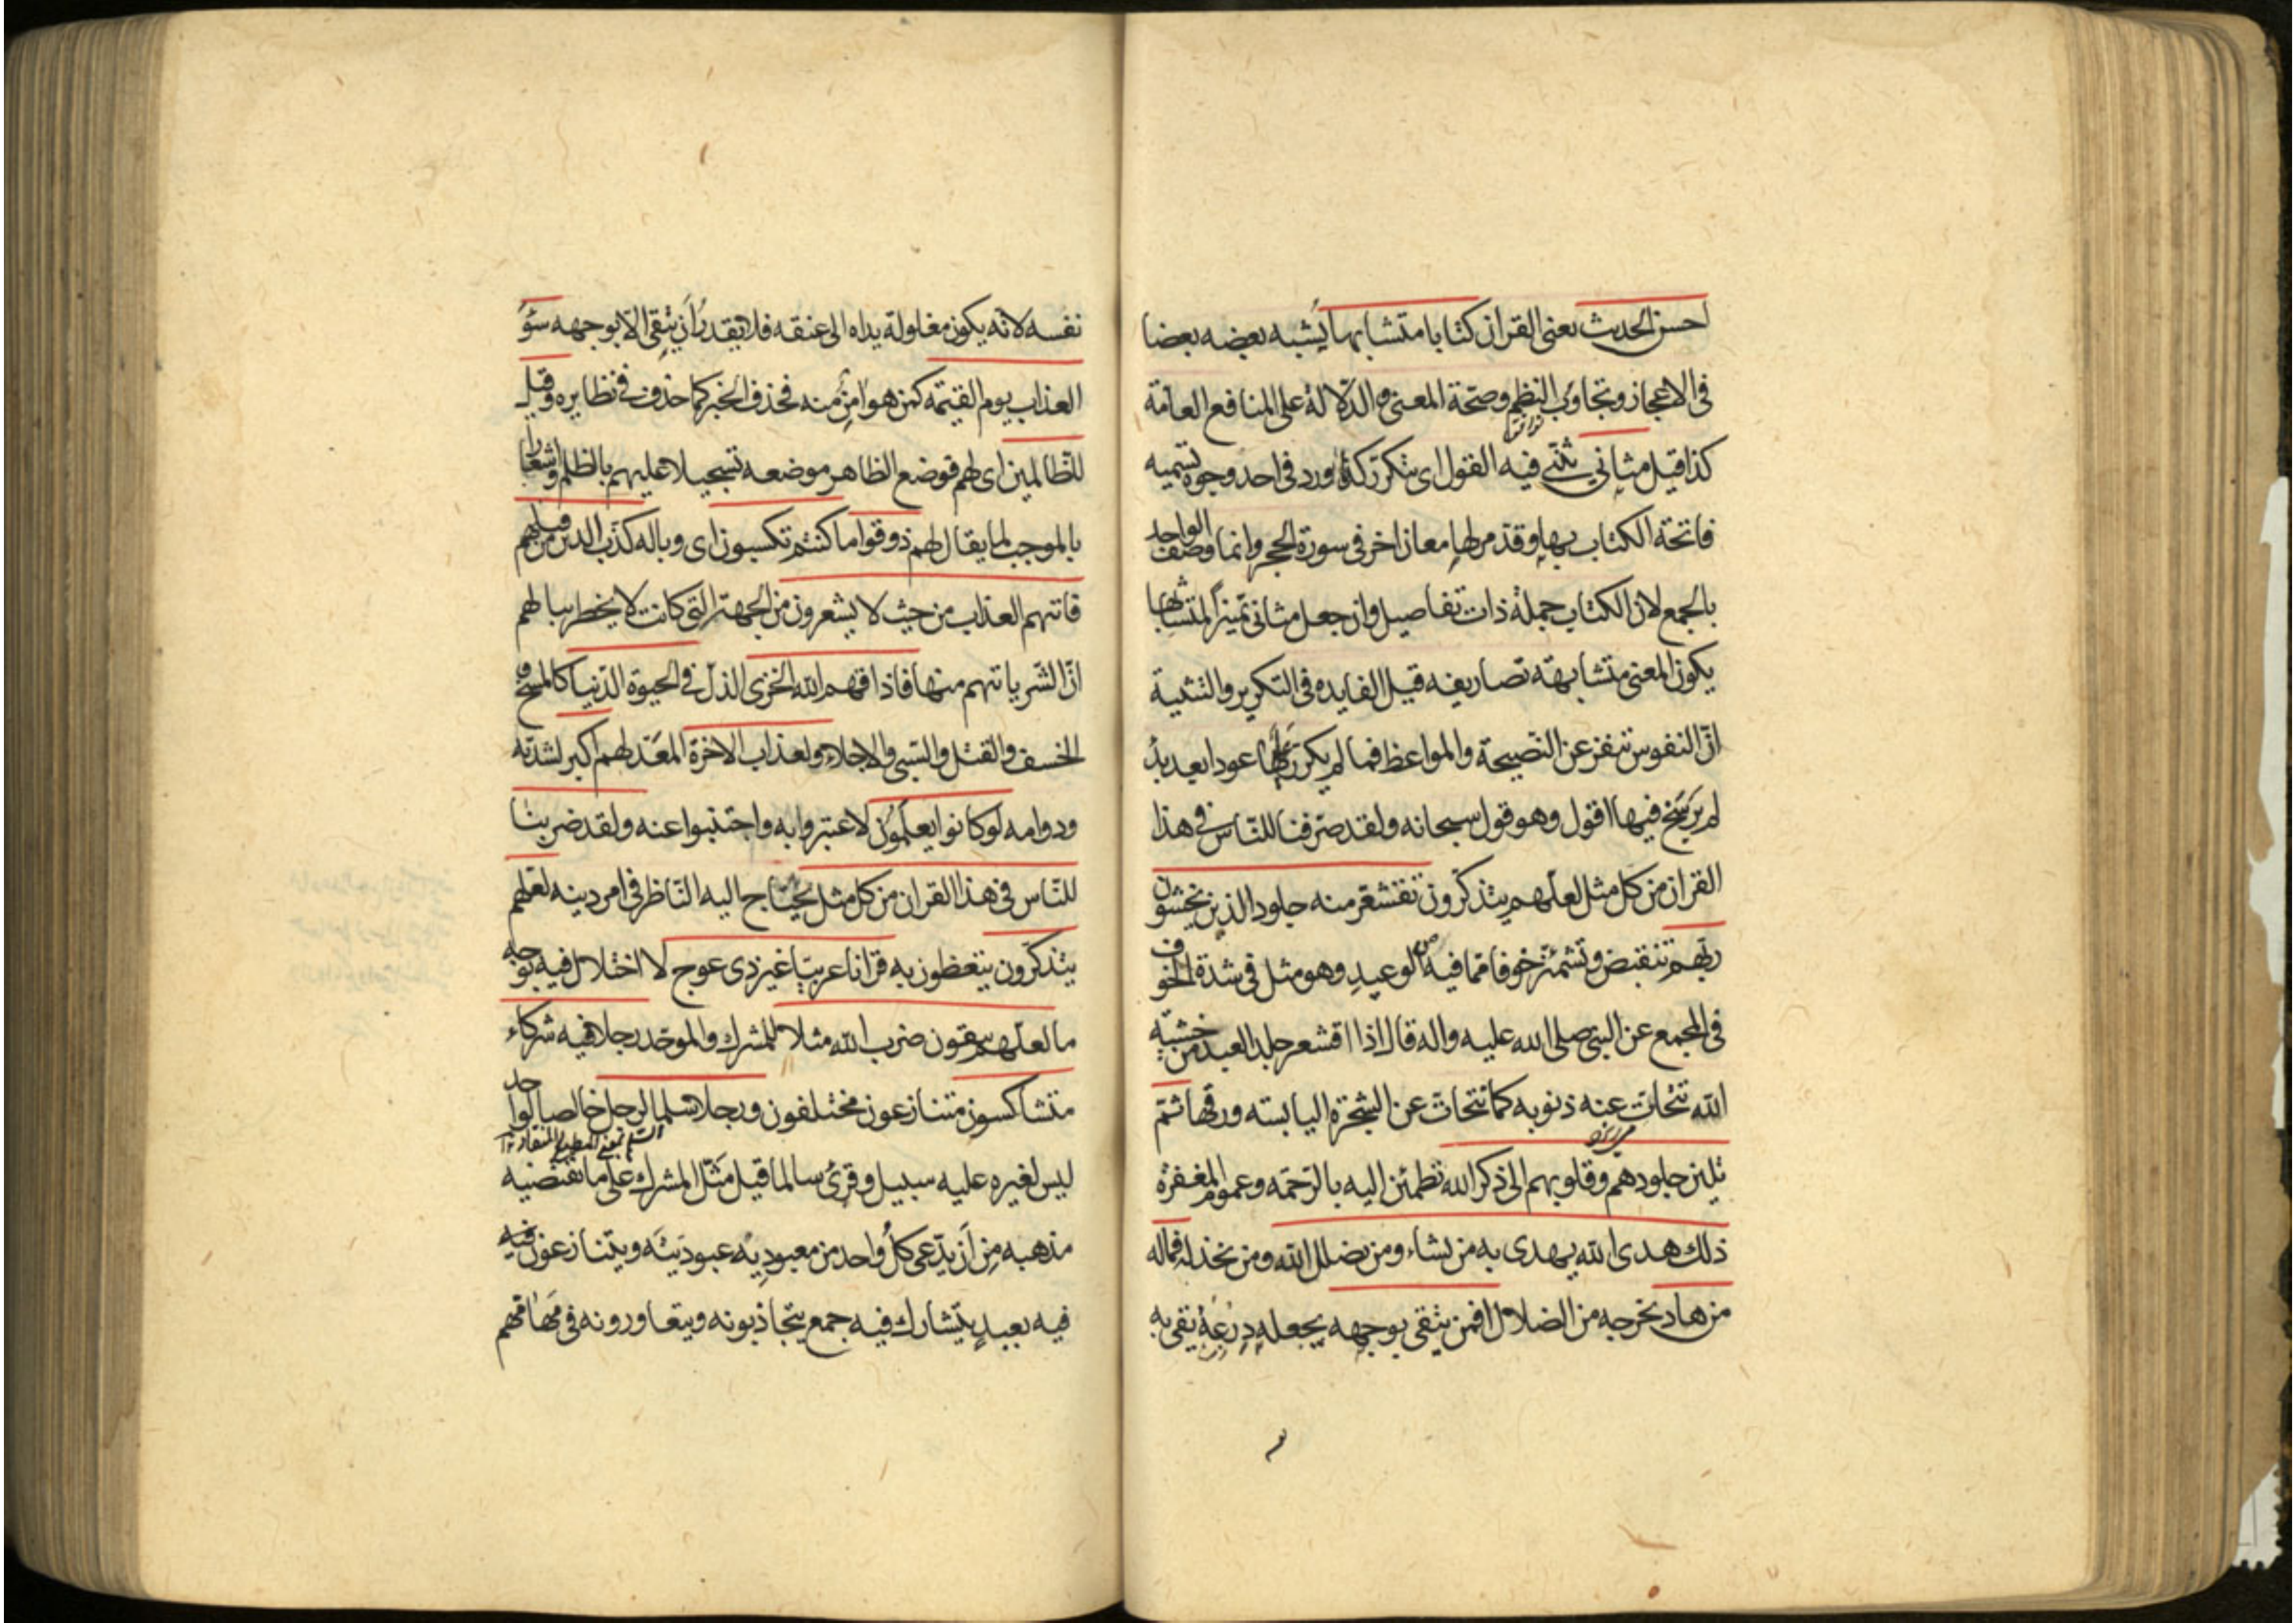 احسن الحديث يعنى القران كتابا متشابها يشبه بعضه بعضا
فى الاعجاز وتجاوب النظم وصحّة المعنى والدّلالة على المنافع العامّة
كذا قيل مثانى تثنّى فيه القول اى يتكرّر كذا ورد فى احد وجوه تسميه
فاتحة الكتاب بها وقد مر لها معان اخر فى سورة الحجر وانما وصف الواحد
بالجمع لان الكتاب جملة ذات تفاصيل وان جعل مثانى تميزاً لمتشابها
يكون المعنى متشابهة تصاريفه قيل الفايده فى التكرير والتثنية
انّ النفوس تنفر عن النّصيحة والمواعظ فما لم يكرر عليها عودا بعد بدٔ
لم يرسخ فيها اقول وهو قول سبحانه ولقد صرّفنا للنّاس فى هذا
القران من كل مثل لعلّهم يتذكّرون تقشعرّ منه جلود الذين يخشون
ربّهم تنقبض وتشمئز خوفا ممّا فيه من الوعيد وهو مثل فى شدة الخوف
فى المجمع عن النبى صلى الله عليه واله قال اذا اقشعر جلد العبد من خشية
الله تتحاتّ عنه ذنوبه كما تتحاتّ عن الشجرة اليابسته ورقها ثمّ
تلين جلودهم وقلوبهم الى ذكر الله تطمئن اليه بالرّحمه وعموم المغفرة
ذلك هدى الله يهدى به من يشاء ومن يضلل الله ومن يخذله فماله
من هاد يخرجه من الضلال افمن يتّقى بوجهه يجعله درعه يقى به
نفسه لانّه يكون مغلولة يداه الى عنقه فلا يقدر أن يتّقى الّا بوجهه سوٓء
العذاب يوم القيمة كمن هو امن منه فحذف الخبر كما حذف فى نظايره وقيل
للظّالمين اى لهم فوضع الظاهر موضعه تسجيلا عليهم بالظلم واشعاراً
بالموجب لما يقال لهم ذوقوا ما كنتم تكسبون اى وباله كذّب الذين من قبلهم
فاتيهم العذاب من حيث لا يشعرون من الجهة التى كانت لا يخطر ببالهم
انّ الشّر ياتيهم منها فاذاقهم الله الخزى الذلّ فى الحيوة الدّنيا كالمسخ و
الخسف والقتل والسّبى والاجلاء ولعذاب الاخرة المعدّ لهم اكبر لشدّته
ودوامه لو كانوا يعلمون لاعتبروا به واجتنبوا عنه ولقد ضربنا
للنّاس فى هذا القران من كل مثل يحتاج اليه النّاظر فى امر دينه لعلّهم
يتذكّرون يتعظون به قرانا عربيّا غير ذى عوج لا اختلال فيه بوجه
ما لعلّهم يتقون ضرب الله مثلا للمشرك والموحّد رجلا فيه شركاء
متشاكسون متنازعون مختلفون ورجلا سلما لرجل خالصا لواحد
ليس لغيره عليه سبيل وقرئ سالما قيل مثّل المشرك على ما يقتضيه
مذهبه من أن يدّعى كلّ واحد من معبوديه عبوديّته ويتنازعون فيه
فيه بعبدٍ يتشارك فيه جمع يتجاذبونه ويتعاورونه فى مهامّهم